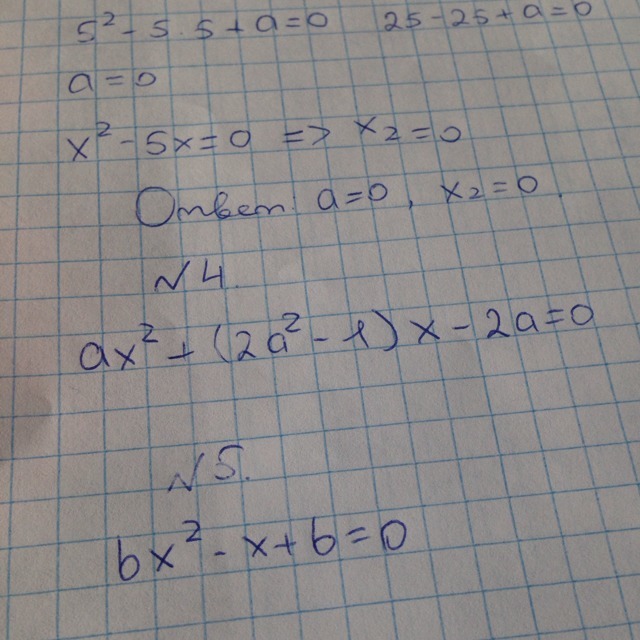 5² - 5·5 + a = 0   25 - 25 + a = 0
a = 0
x² - 5x = 0 => x₂ = 0
Ответ: a = 0, x₂ = 0.
№4.
ax² + (2a² - 1)x - 2a = 0
№5.
bx² - x + b = 0